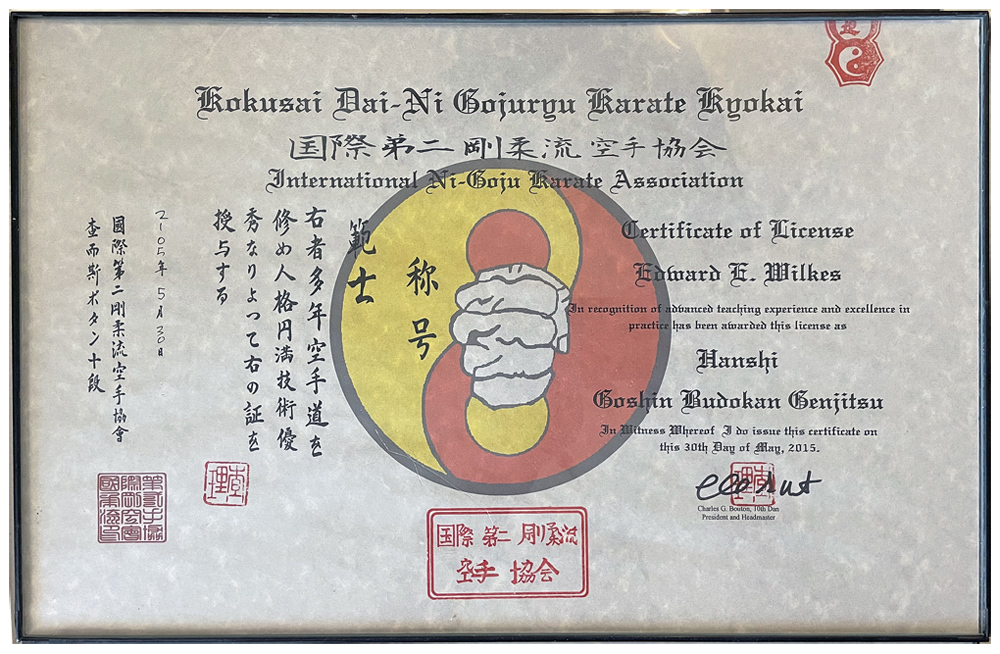 Kokusai Dai-Ni Gojuryu Karate Kyokai
国際第二剛柔流空手協会
International Ni-Goju Karate Association
Certificate of License
Edward E. Wilkes
In recognition of advanced teaching experience and excellence in
practice has been awarded this license as
Hanshi
Goshin Budokan Genjitsu
In Witness Whereof I do issue this certificate on
this 30th Day of May, 2015.
Charles G. Bouton, 10th Dan
President and Headmaster
称号
範士
右者多年空手道を
修め人格円満技術優
秀なりよって右の証を
授与する
2105年5月30日
國際第二剛柔流空手協會
査而斯ボタン十段
国際 第二 剛柔流
空手 協会